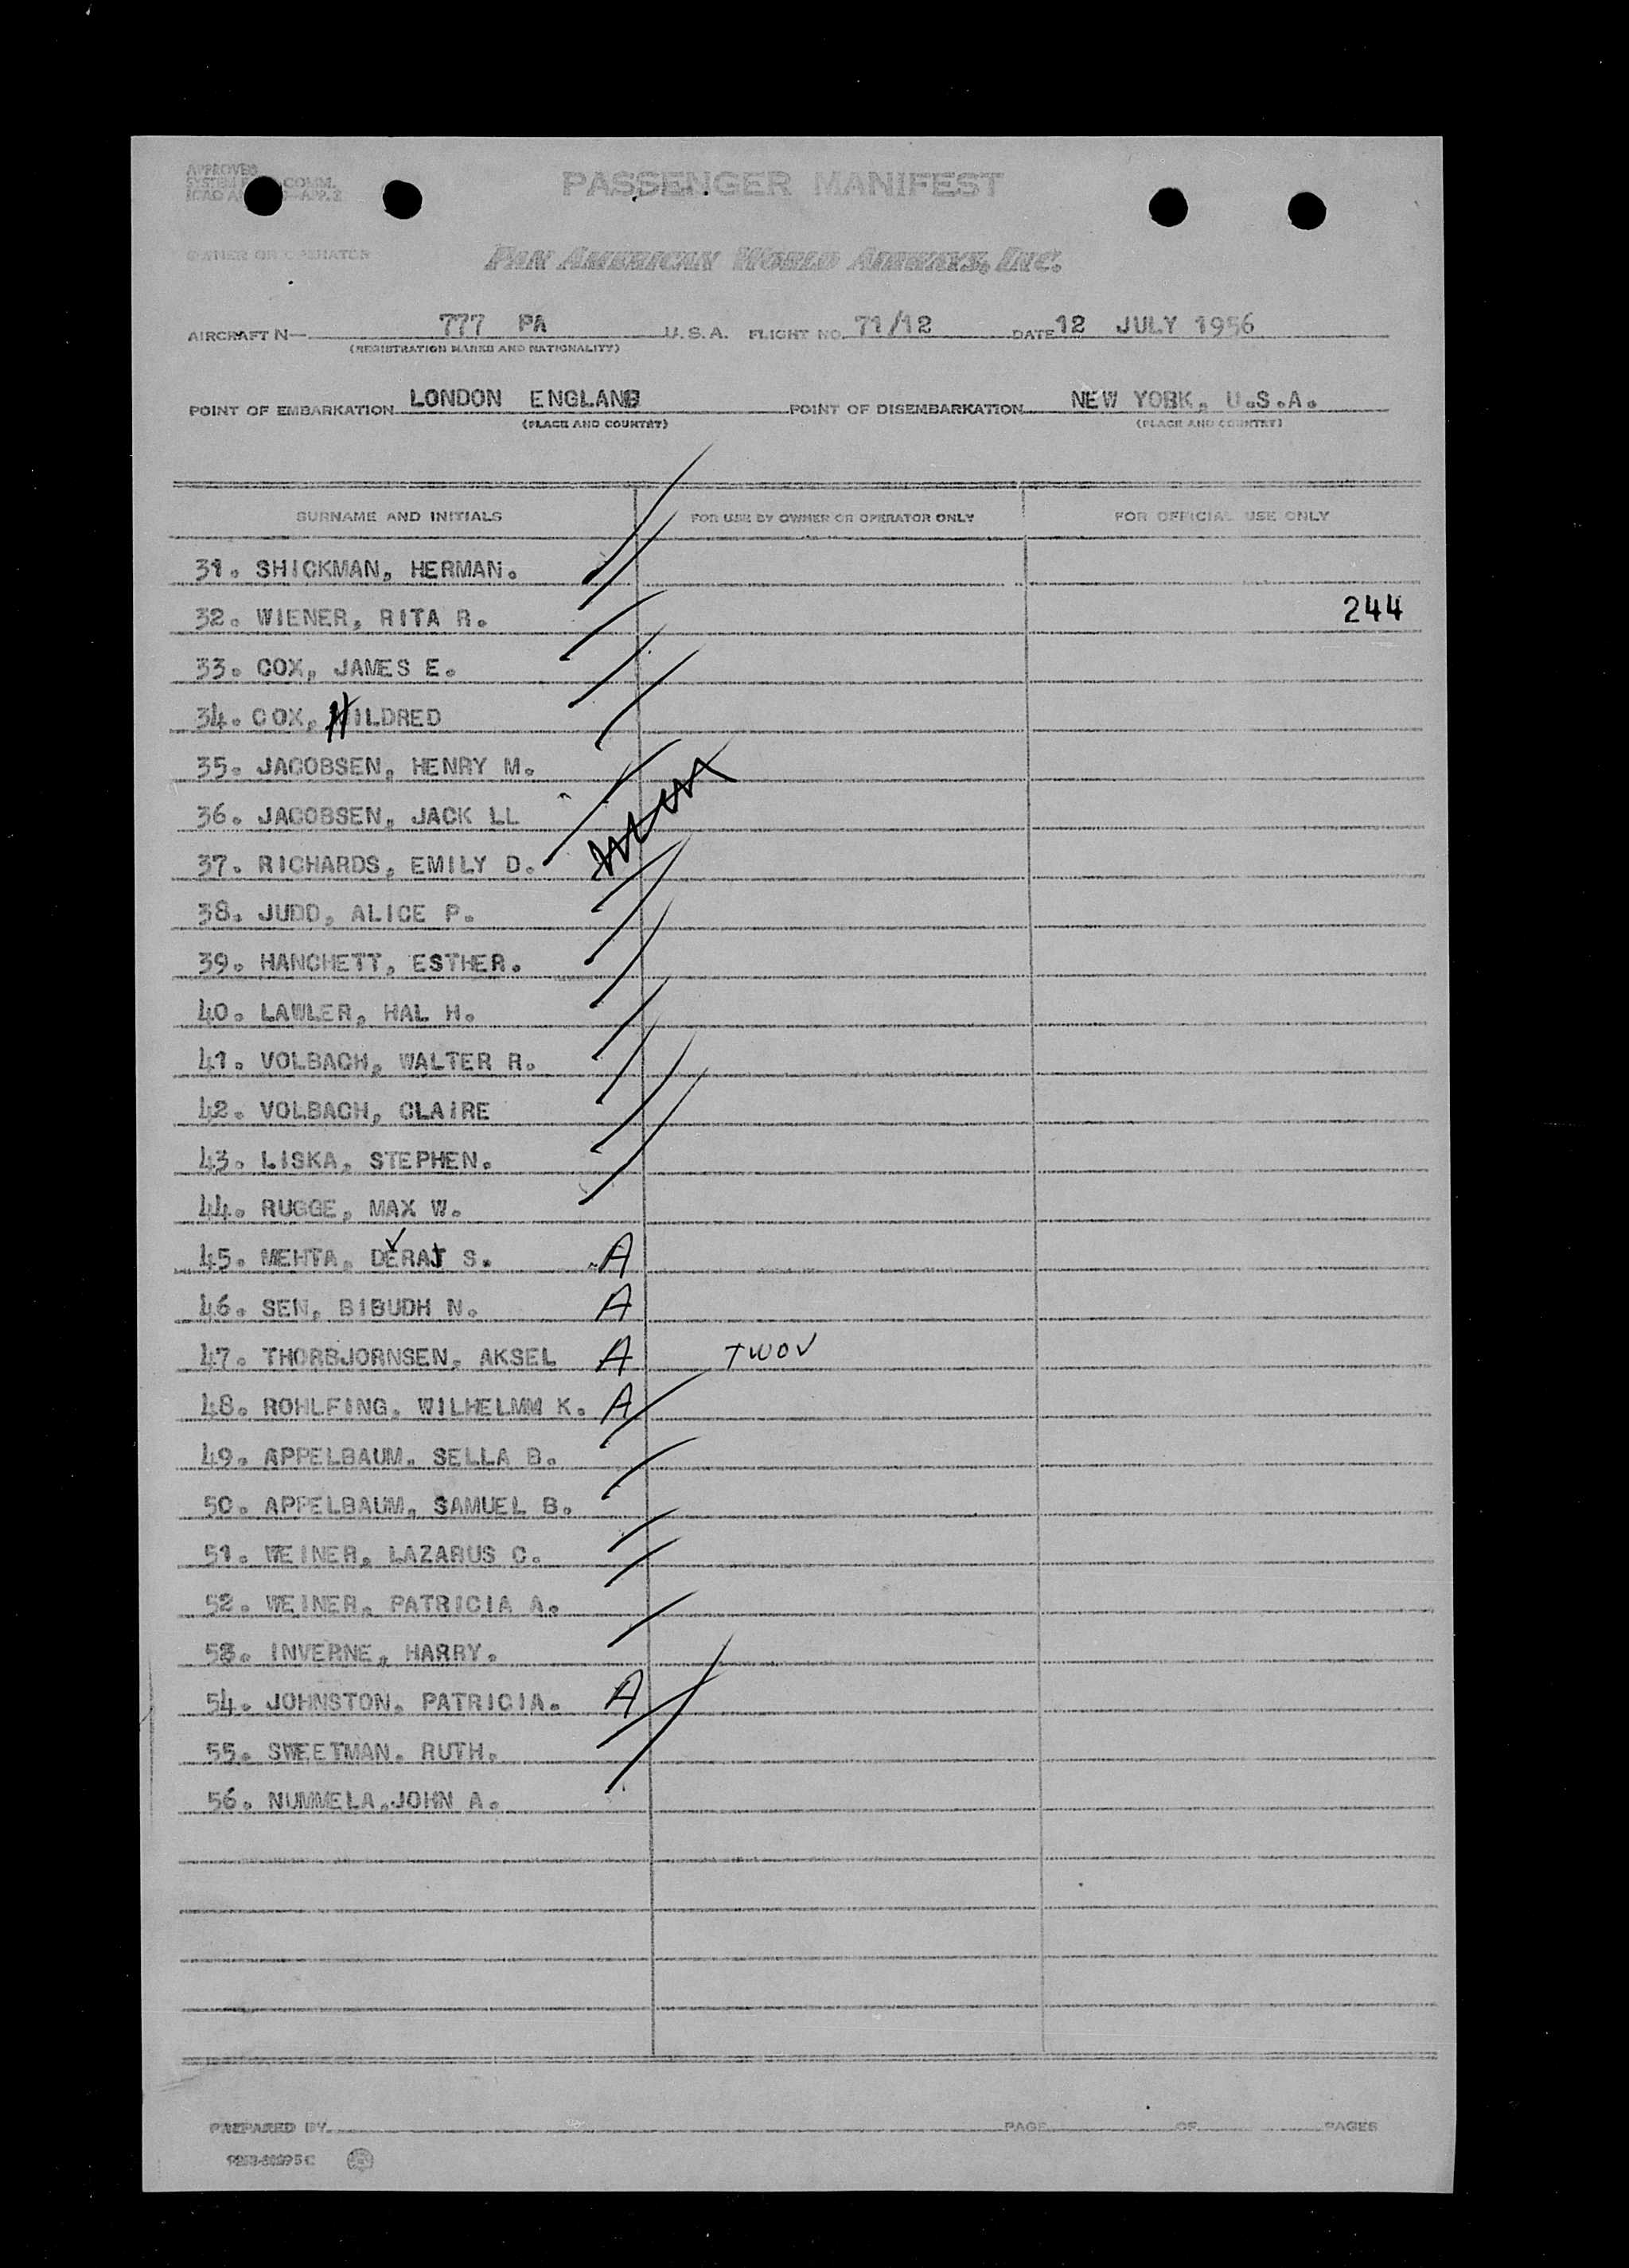 APPROVED
SYSTEM COMM.
ICAO A —APP.2
PASSENGER MANIFEST
OWNER OR OPERATOR
PAN AMERICAN WORLD AIRWAYS, INC.
AIRCRAFT N— 777 PA U.S.A. FLIGHT NO. 71/12 DATE 12 JULY 1956
(REGISTRATION MARKS AND NATIONALITY)
POINT OF EMBARKATION LONDON ENGLAND POINT OF DISEMBARKATION NEW YORK, U.S.A.
(PLACE AND COUNTRY) (PLACE AND COUNTRY)
SURNAME AND INITIALS FOR USE BY OWNER OR OPERATOR ONLY FOR OFFICIAL USE ONLY
31. SHICKMAN, HERMAN.
32. WIENER, RITA R. 244
33. COX, JAMES E.
34. COX, HILDRED
35. JACOBSEN, HENRY M.
36. JACOBSEN, JACK LL
37. RICHARDS, EMILY D.
38. JUDD, ALICE P.
39. HANCHETT, ESTHER.
40. LAWLER, HAL H.
41. VOLBACH, WALTER R.
42. VOLBACH, CLAIRE
43. LISKA, STEPHEN.
44. RUGGE, MAX W.
45. MEHTA, DERAJ S. A
46. SEN, BIBUDH N. A
47. THORBJORNSEN, AKSEL A TWOV
48. ROHLFING, WILHELMM K. A
49. APPELBAUM, SELLA B.
50. APPELBAUM, SAMUEL B.
51. WEINER, LAZARUS C.
52. WEINER, PATRICIA A.
53. INVERNE, HARRY.
54. JOHNSTON, PATRICIA. A
55. SWEETMAN. RUTH.
56. NUMMELA,JOHN A.
PREPARED BY PAGE OF PAGES